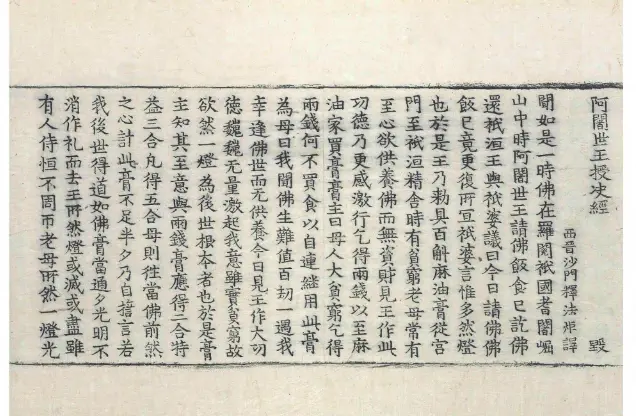 阿闍世王授决經
西晋沙門釋法炬譯 毀
聞如是一時佛在羅閱祇國耆闍崛
山中時阿闍世王請佛飯食已訖佛
還祇洹王與祇婆議曰今日請佛佛
飯已竟更復所宜祇婆言惟多然燈
也於是王乃勅具百斛麻油膏從宮
門至祇洹精舎時有貧窮老母常有
至心欲供養佛而無資財見王作此
功德乃更感激行乞得兩錢以至麻
油家買膏膏主曰母人大貧窮乞得
兩錢何不買食以自連継用此膏
為母曰我聞佛生難值百劫一遇我
幸逢佛世而无供養今日見王作大功
德巍巍无量激起我意雖實貧窮故
欲然一燈為後世根本者也於是膏
主知其至意與兩錢膏應得二合特
益三合凡得五合母則往當佛前然
之心計此膏不足半夕乃自擔言若
我後世得道如佛膏當通夕光明不
消作礼而去王所然燈或滅或盡雖
有人侍恒不周帀老母所然一燈光